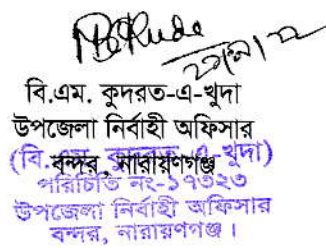 বি.এম. কুদরত-এ-খুদা
উপজেলা নির্বাহী অফিসার
বন্দর, নারায়ণগঞ্জ
(বি.এম. কুদরত-এ-খুদা)
পরিচিতি নং-১৭৩২৩
উপজেলা নির্বাহী অফিসার
বন্দর, নারায়ণগঞ্জ।